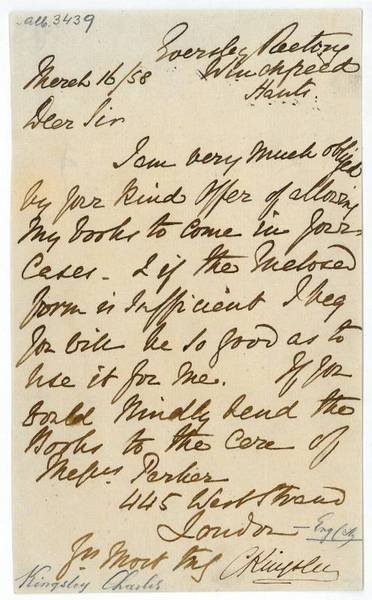 alb. 3439
Eversley Rectory
Winchfield
Hants.
March 16/58
Dear Sir
I am very much obliged
by your kind offer of allowing
my books to come in your
cases. & if the enclosed
form is sufficient I beg
you will be so good as to
use it for me. If you
would kindly send the
Books to the care of
Messrs. Parker
445 West Strand
London
Yrs most
C Kingsley
Kingsley Charles